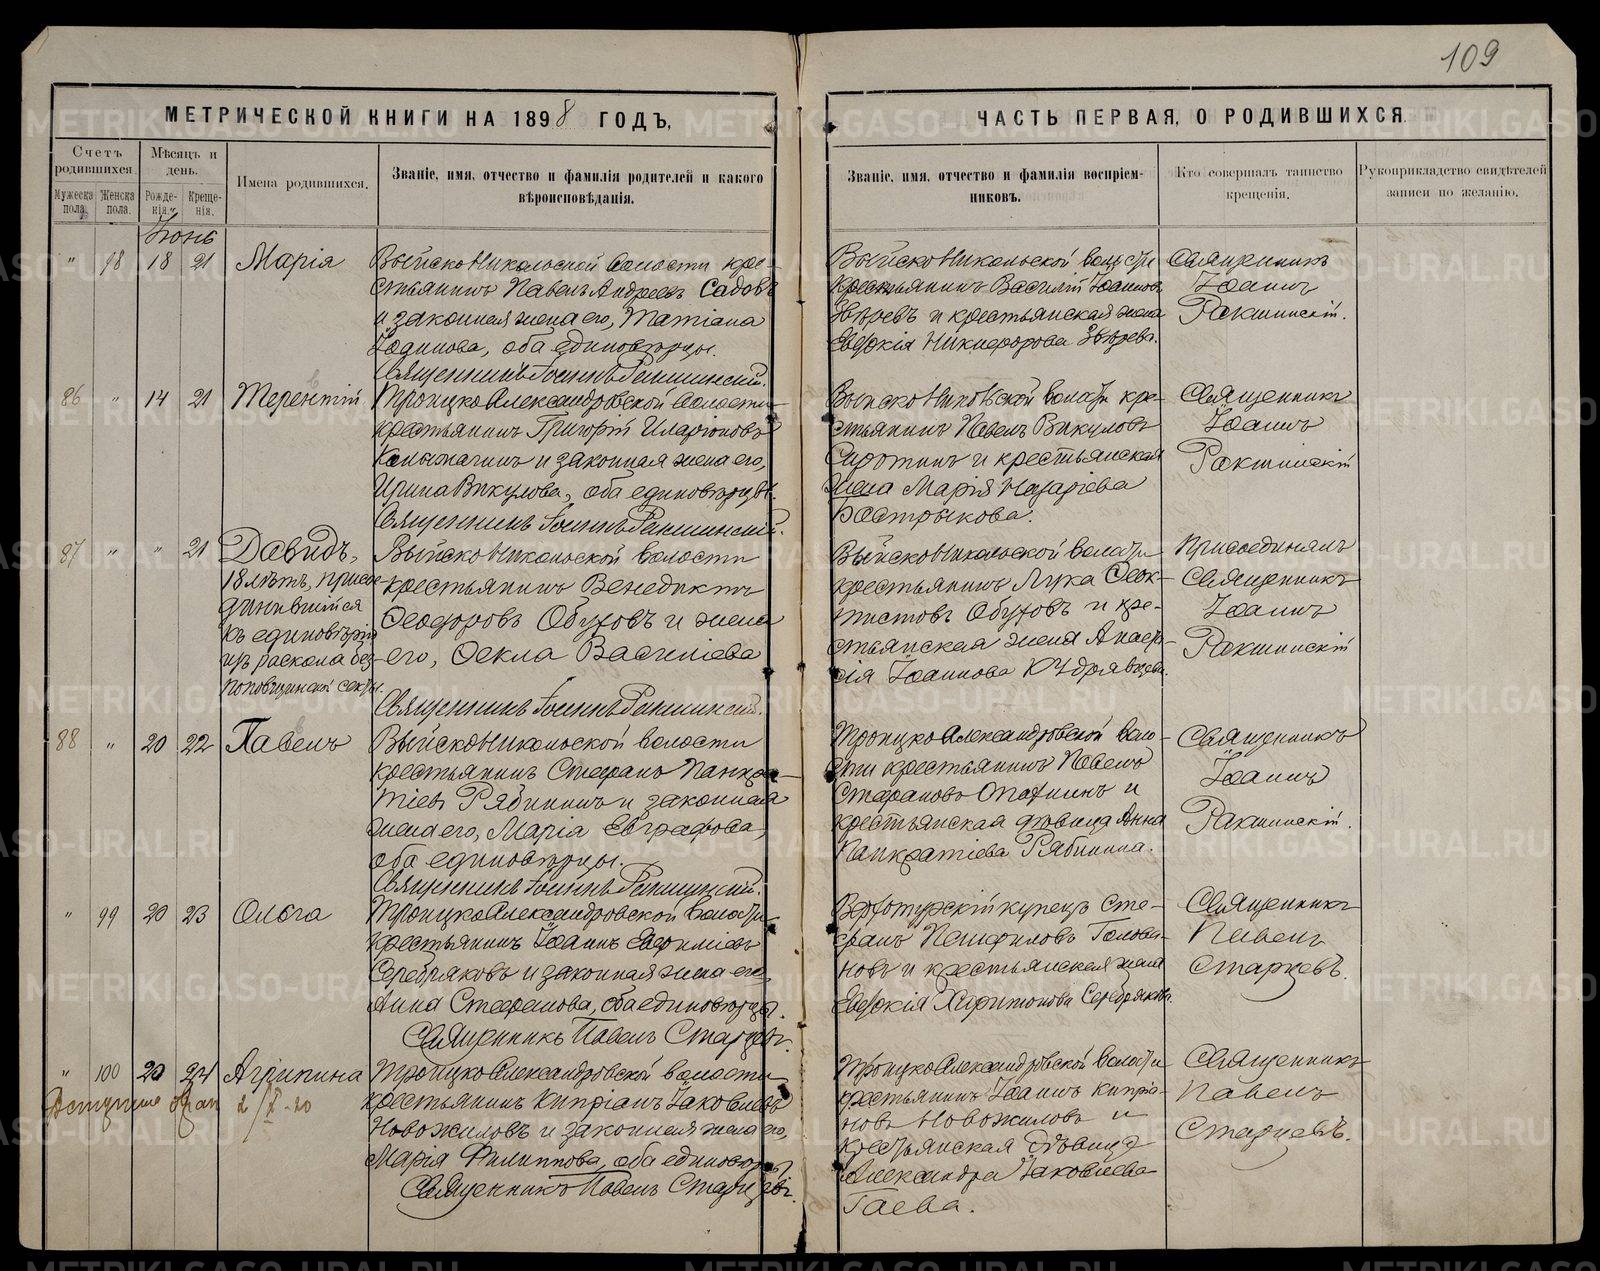 109
МЕТРИЧЕСКОЙ КНИГИ НА 1898 ГОДЪ,
ЧАСТЬ ПЕРВАЯ, О РОДИВШИХСЯ.
Счетъ родившихся.
Мужеска пола.
Женска пола.
Мѣсяцъ и день.
Рожде-нія.
Креще-нія.
Имена родившихся.
Званіе, имя, отчество и фамилія родителей и какого
вѣроисповѣданія.
Званіе, имя, отчество и фамилія воспріем-
никовъ.
Кто совершалъ таинство
крещенія.
Рукоприкладство свидѣтелей
записи по желанію.
Іюнь
" 98 18 21 Марія
Выйско Никольской волости кре-
стьянинъ Павелъ Андреевъ Садовъ
и законная жена его, Татіана
оба единовѣрцы.
Священникъ Іоаннъ Ракшинскій.
Выйско Никольской волости
крестьянинъ Василій Іоанновъ
Звѣревъ и крестьянская жена
Евдокія Никифорова Звѣрева.
Священникъ
Іоаннъ
Ракшинскій.
86 " 14 21 Терентій
Троицко Александровской волости
крестьянинъ Григорій Иларіоновъ
и законная жена его,
Ирина Викулова, оба единовѣрцы.
Священникъ Іоаннъ Ракшинскій.
Выйско Никольской волости кре-
стьянинъ Павелъ Викуловъ
Сиротинъ и крестьянская
жена Марія Назаріева
Бастрыкова.
Священникъ
Іоаннъ
Ракшинскій
87 " " 21 Давидъ,
18 лѣтъ, присое-
динившійся
къ единовѣрію
изъ раскола без-
поповщинской секты.
Выйско Никольской волости
крестьянинъ Венедиктъ
Ѳеодоровъ Обуховъ и жена
его, Ѳекла Василіева
Священникъ Іоаннъ Ракшинскій.
Выйско Никольской волости
крестьянинъ Лука Ѳеок-
тистовъ Обуховъ и кре-
стьянская жена Анаста-
сія Іоаннова Кудрявцева.
Присоединялъ
Священникъ
Іоаннъ
Ракшинскій
88 " 20 22 Павелъ
Выйско Никольской волости
крестьянинъ Стефанъ Панкра-
тіевъ Рябининъ и законная
жена его, Марія Евграфова,
оба единовѣрцы.
Священникъ Іоаннъ Ракшинскій.
Троицко Александровской воло-
сти крестьянинъ Павелъ
Стефановъ и
крестьянская дѣвица Анна
Панкратіева Рябинина.
Священникъ
Іоаннъ
Ракшинскій.
" 99 20 23 Ольга
Троицко Александровской волости
крестьянинъ Іоаннъ Евфиміевъ
Серебряковъ и законная жена его,
Анна Стефанова, оба единовѣрцы.
Священникъ Павелъ Старцевъ.
Верхотурскій купецъ Сте-
фанъ Голова-
новъ и крестьянская жена
Евдокія Харитонова Серебрякова.
Священникъ
Павелъ
Старцевъ.
" 100 20 24 Агрипина
Троицко Александровской волости
крестьянинъ Кипріанъ Іаковлевъ
Новожиловъ и законная жена его,
Марія Филиппова, оба единовѣрцы
Священникъ Павелъ Старцевъ.
Троицко Александровской волости
крестьянинъ Іоаннъ Кипріа-
новъ Новожиловъ и
крестьянская дѣвица
Александра Іаковлева
Гаева.
Священникъ
Павелъ
Старцевъ.
METRIKI.GASO-URAL.RU